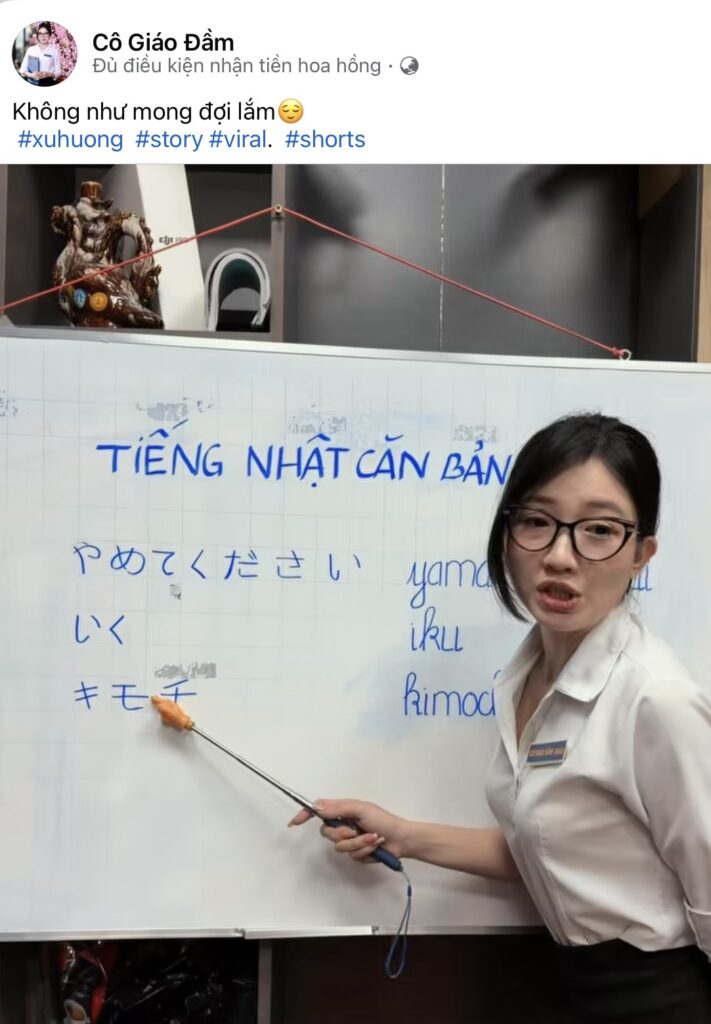 Cô Giáo Đầm
Đủ điều kiện nhận tiền hoa hồng ·
Không như mong đợi lắm😌
#xuhuong #story #viral. #shorts
dji
TIẾNG NHẬT CĂN BẢN
やめてください yama
いく iku
キモチ kimoc